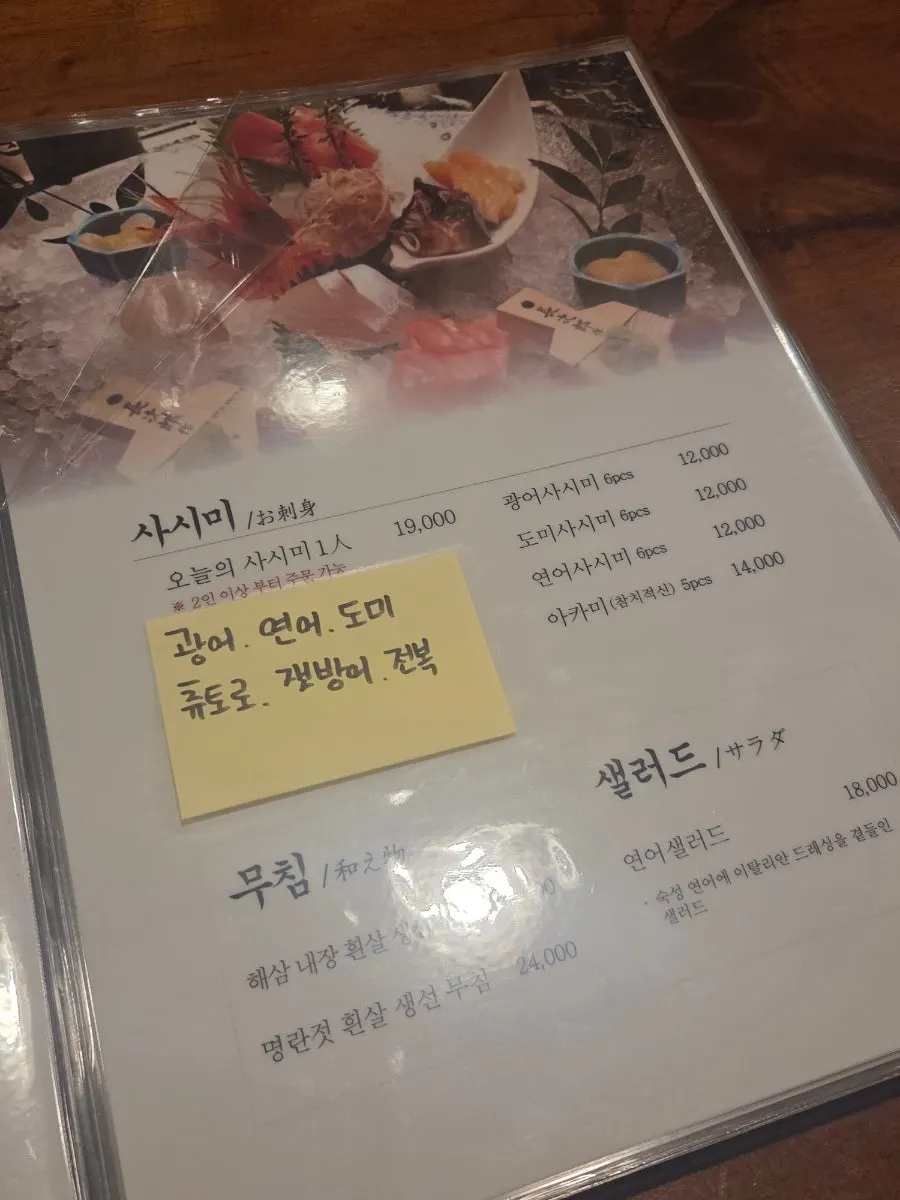 사시미 /お刺身
오늘의 사시미 1人 19,000
※ 2인 이상 부터 주문 가능
광어. 연어. 도미
츄토로. 잿방어. 전복
광어사시미 6pcs 12,000
도미사시미 6pcs 12,000
연어사시미 6pcs 12,000
아카미(참치적신) 5pcs 14,000
샐러드 /サラダ
연어샐러드 18,000
· 숙성 연어에 이탈리안 드레싱을 곁들인
샐러드
무침 /和え物
해삼 내장 흰살
명란젓 흰살 생선 무침 24,000